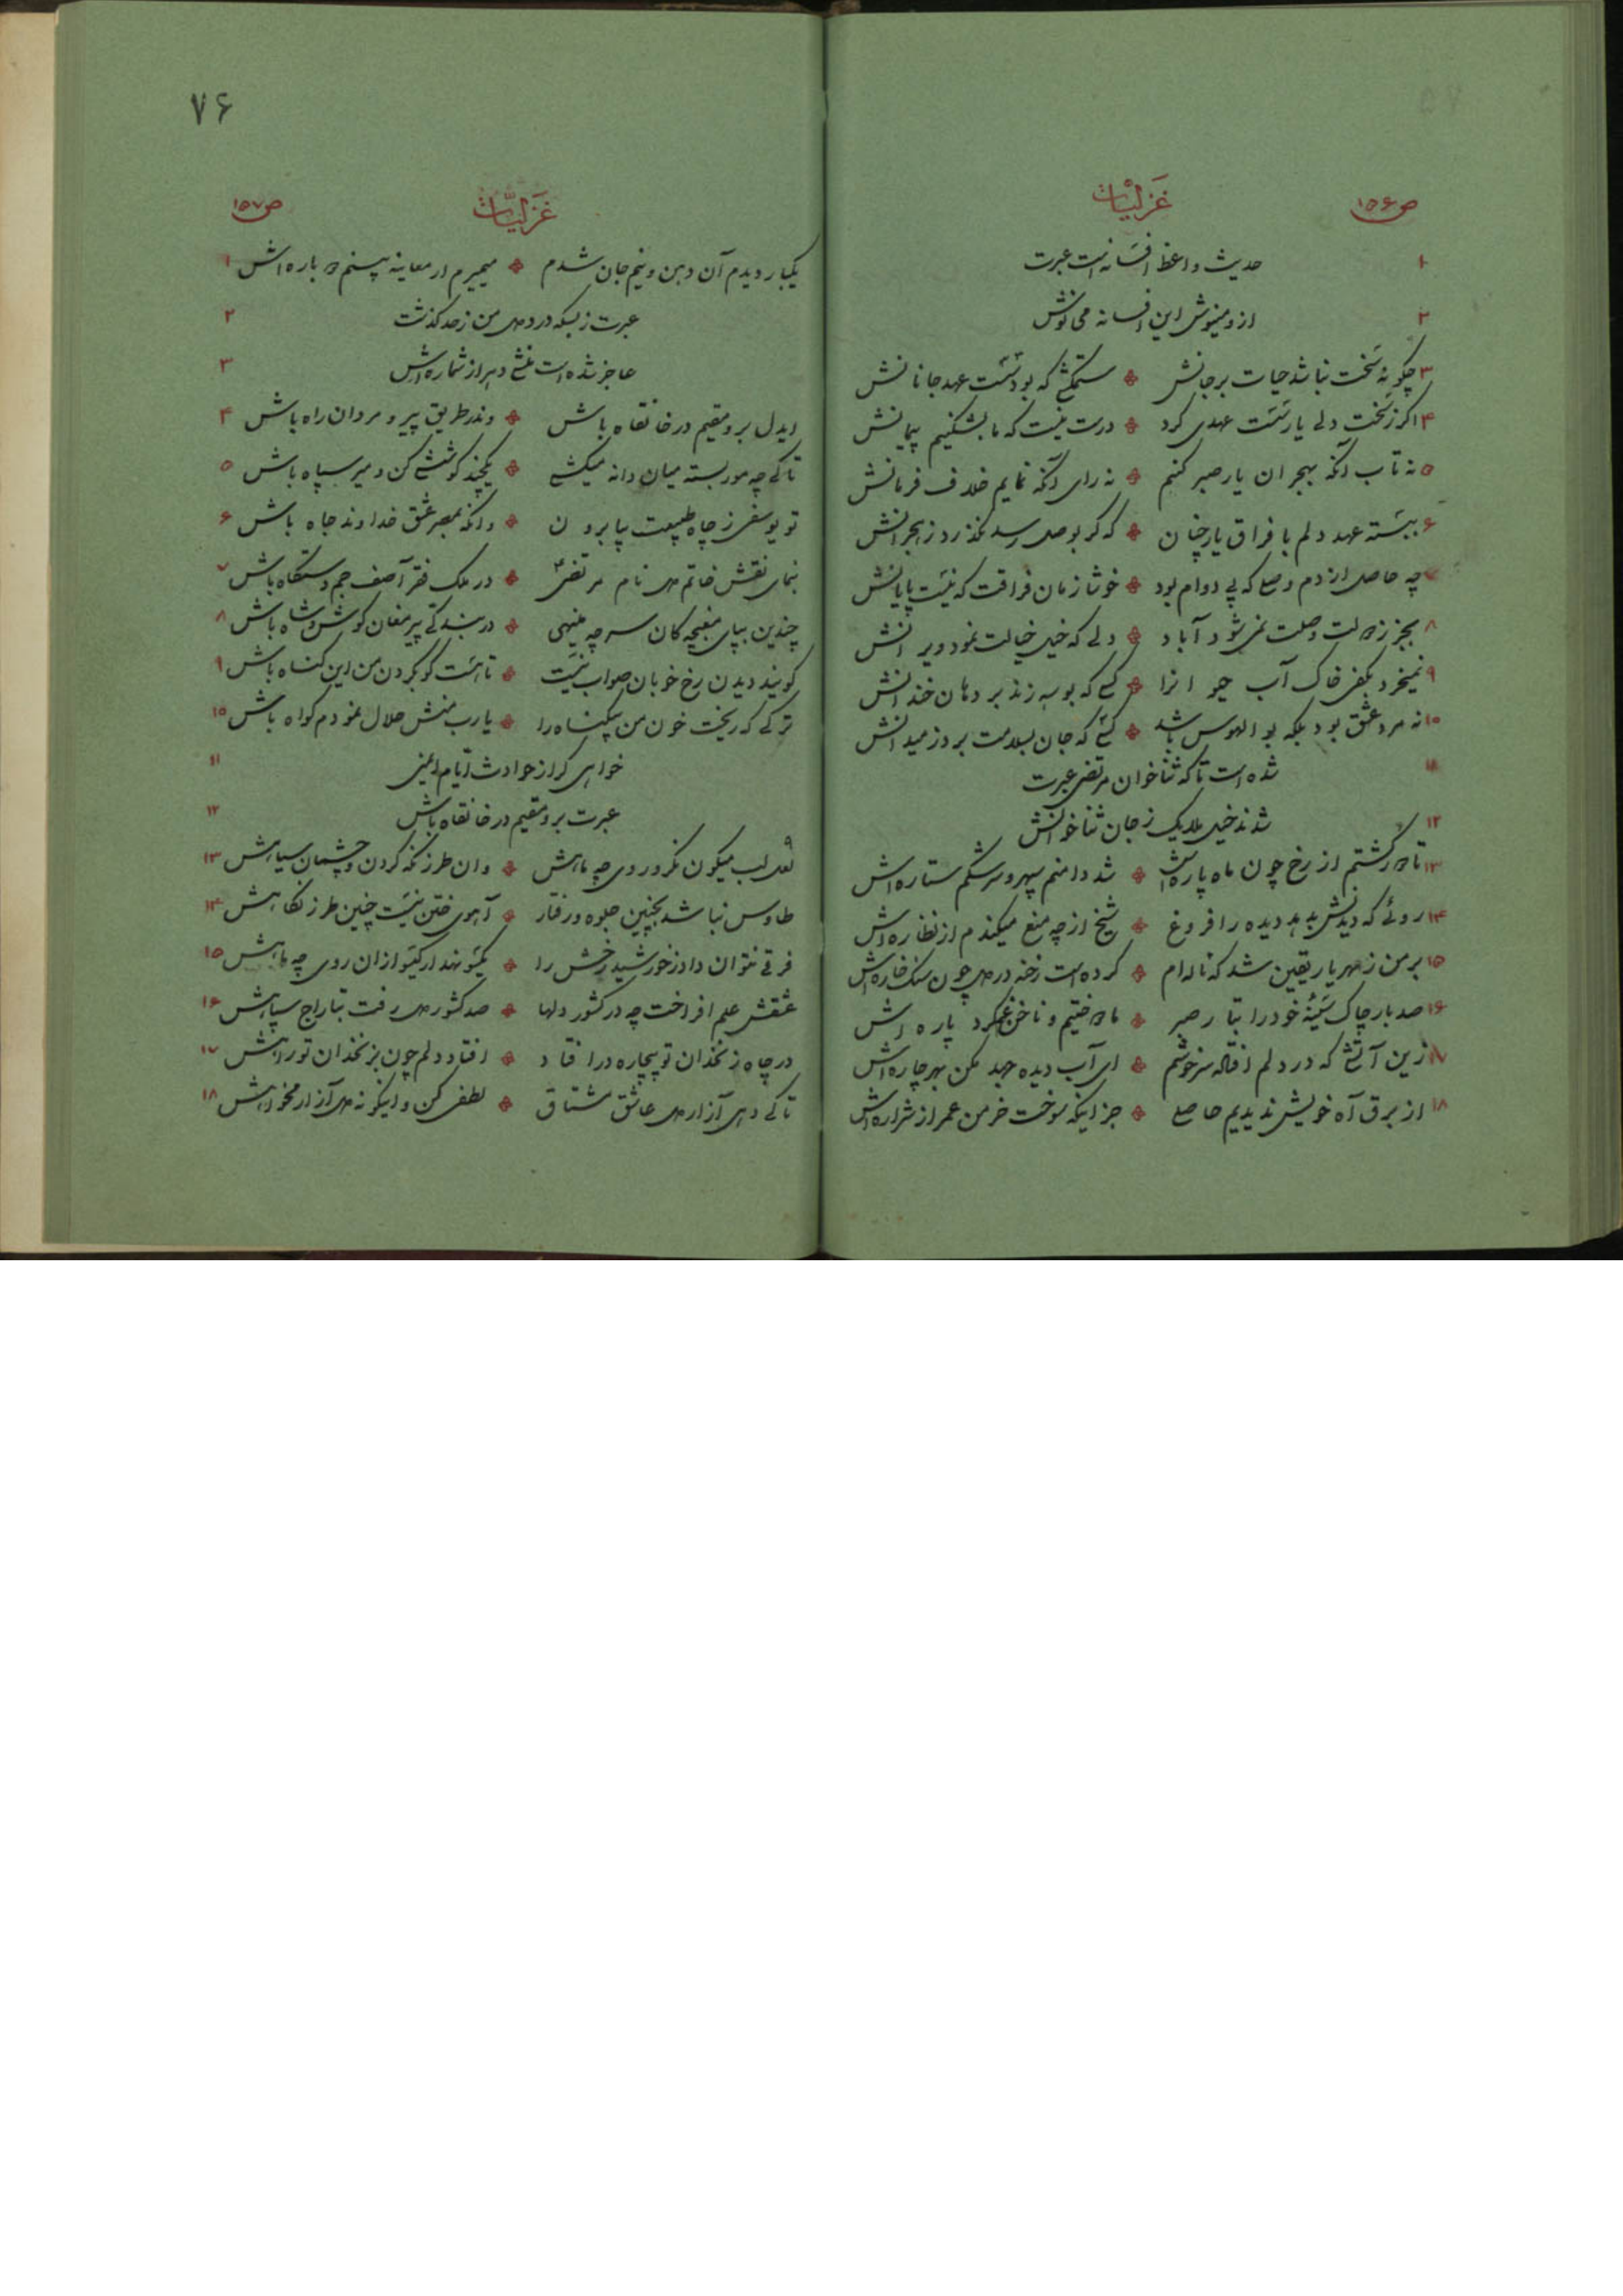 ص۱۵۶ غَزَلیّات
۱ حدیث واعظ افسانه است عبرت
۲ ازو مینوش این افسانه می نوش
۳ چگونه سخت نباشد حیات بر جانش ستمکشی که بود سست عهد جانانش
۴ اگر ز سخت دلی یار سست عهدی کرد درست نیست که ما بشکنیم پیمانش
۵ نه تاب آنکه بهجران یار صبر کنم نه رای آنکه نمایم خلاف فرمانش
۶ ببسته عهد دلم با فراق یار چنان که گر بوصل رسد نگذرد ز هجرانش
۷ چه حاصل از دم وصلی که بی دوام بود خوشا زمان فراقت که نیست پایانش
۸ بجز ز دولت وصلت نمی شود آباد دلی که خیل خیالت نمود ویرانش
۹ نمیخرد بکفی خاک آب حیوانرا کسی که بوسه زند بر دهان خندانش
۱۰ نه مرد عشق بود بلکه بوالهوس باشد کسی که جان بسلامت برد ز میدانش
۱۱ شده است تا که ثناخوان مرتضی عبرت
۱۲ شدند خیل ملایک ز جان ثناخوانش
۱۳ تا دور گشتم از رخ چون ماه پاره اش شد دامنم سپهر و سرشکم ستاره اش
۱۴ روئی که دیدنش بدهد دیده را فروغ شیخ از چه منع میکندم از نظاره اش
۱۵ بر من ز مهر یار یقین شد که ناله ام کرده است رخنه در دل چون سنگ خاره اش
۱۶ صد بار چاک سینهٔ خود را بتار صبر ما دوختیم و ناخن غم کرد پاره اش
۱۷ زین آتشی که در دلم افتاد سرخوشم ای آب دیده جهد مکن بهر چاره اش
۱۸ از برق آه خویش ندیدیم حاصلی جز اینکه سوخت خرمن عمر از شراره اش
۷۶
ص۱۵۷ غَزَلیّات
یکبار دیدم آن دهن و نیم جان شدم میمیرم ار معاینه بینم دوباره اش ۱
عبرت ز بسکه درد دل من ز حد گذشت ۲
عاجز شده است منشی دهر از شماره اش ۳
ایدل برو مقیم در خانقاه باش وندر طریق پیرو مردان راه باش ۴
تا کی چه مور بسته میان دانه میکشی یکچند کوششی کن و میر سپاه باش ۵
تو یوسفی ز چاه طبیعت بیا برون وانگه بمصر عشق خداوند جاه باش ۶
بنمای نقش خاتم دل نام مرتضی در ملک فقر آصف جم دستگاه باش ۷
چندین بپای مغبچه کان سر چه مینهی در بندگی پیر مغان کوش و شاه باش ۸
گویند دیدن رخ خوبان صواب نیست تا هست گو بگردن من این گناه باش ۹
ترکی که ریخت خون من بیگناه را یا رب منش حلال نمودم گواه باش ۱۰
خواهی گر از حوادث ایام ایمنی ۱۱
عبرت برو مقیم در خانقاه باش ۱۲
لعل لب میگون نگر و روی چه ماهش وان طرز نگه کردن و چشمان سیاهش ۱۳
طاوس نباشد بچنین جلوه و رفتار آهوی ختن نیست چنین طرز نگاهش ۱۴
فرقی نتوان داد ز خورشید رخش را یکسو نهد ار گیسو از ان روی چه ماهش ۱۵
عشقش علم افراخت چه در کشور دلها صد کشور دل رفت بتاراج سپاهش ۱۶
در چاه زنخدان تو بیچاره در افتاد افتاد دلم چون بزنخدان تو راهش ۱۷
تا کی دهی آزار دل عاشق مشتاق لطفی کن و اینگونه دل آزار مخواهش ۱۸